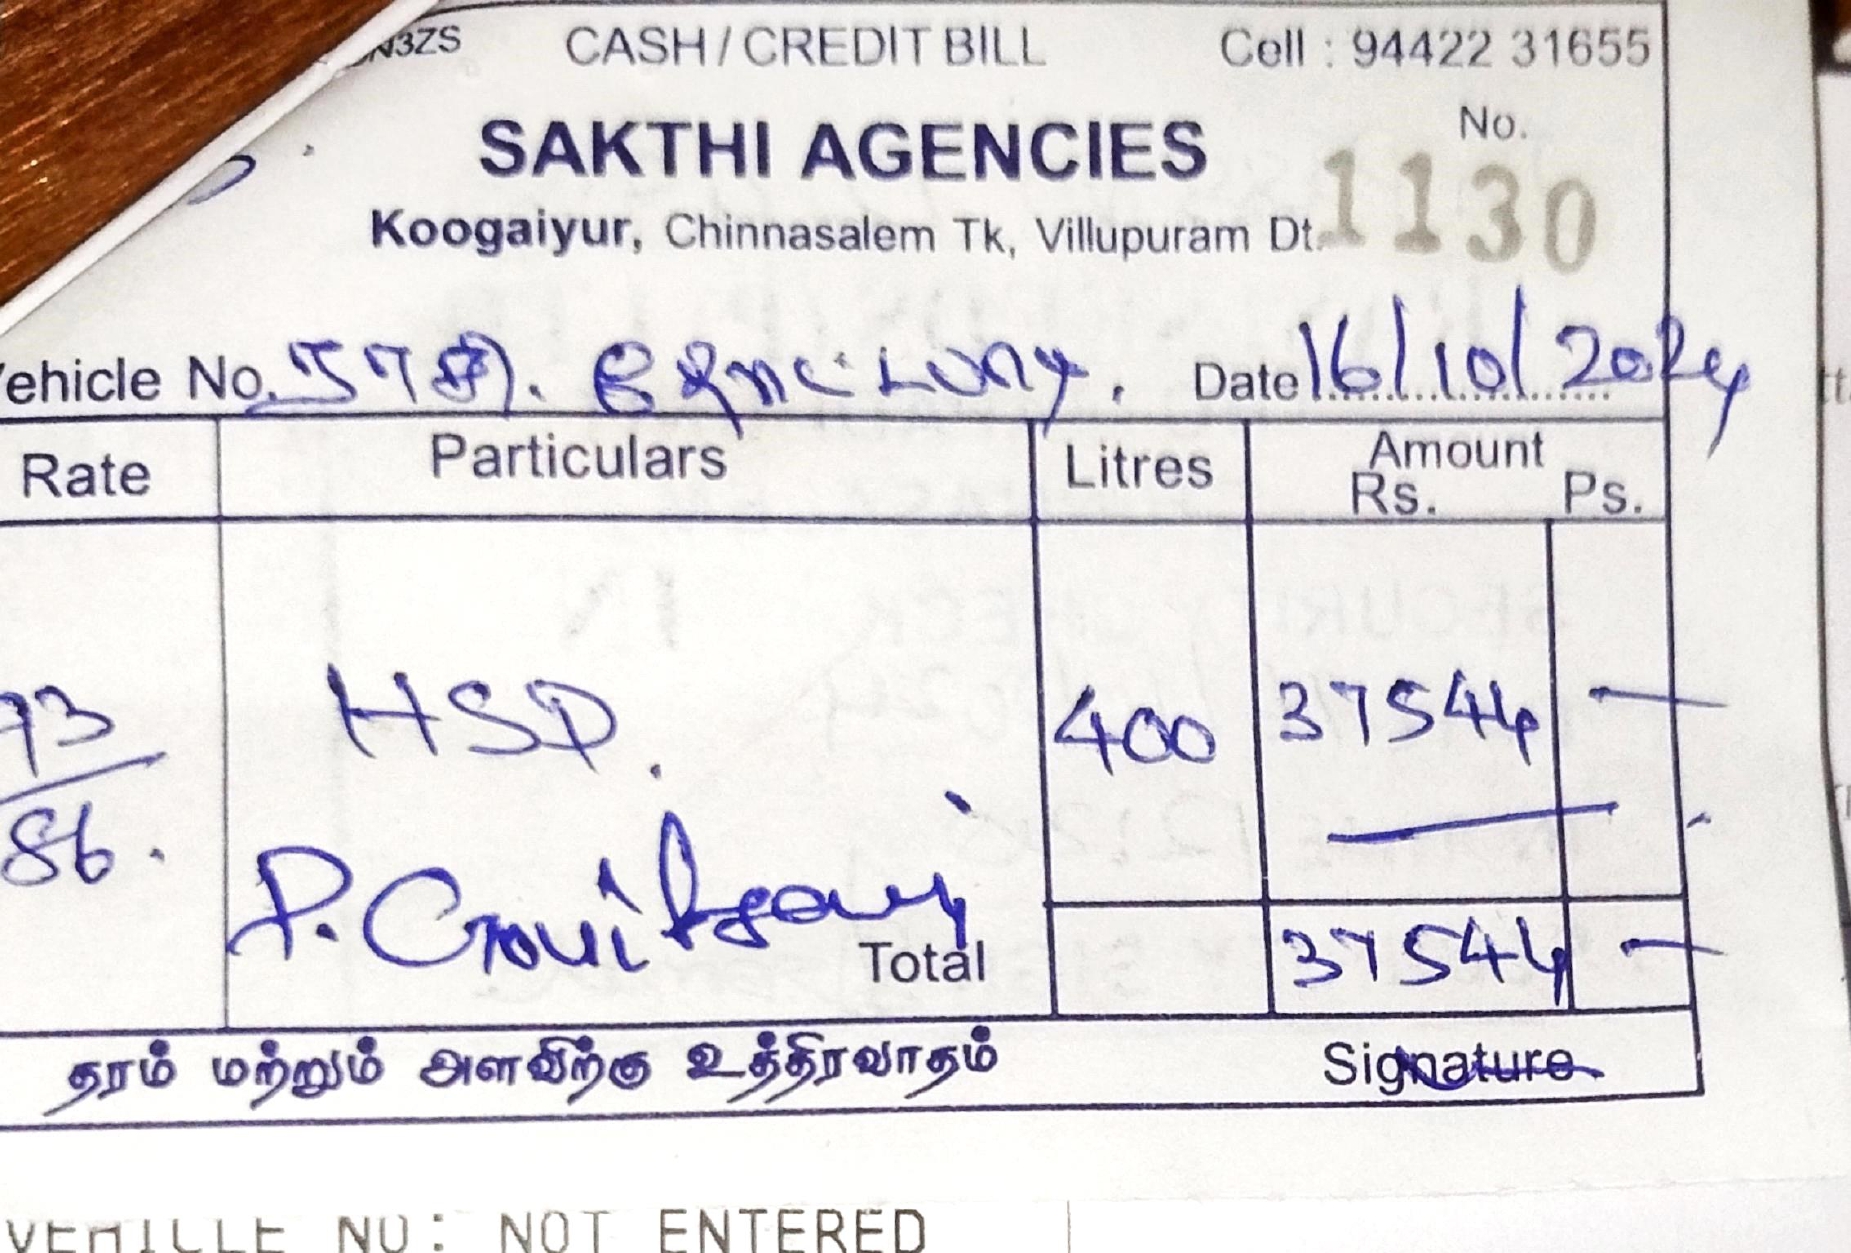 N3ZS CASH / CREDIT BILL Cell : 94422 31655
SAKTHI AGENCIES No.
Koogaiyur, Chinnasalem Tk, Villupuram Dt. 1130
ehicle No. Date 16/10/2024
Rate Particulars Litres Amount
Rs. Ps.
93 HSD. 400 37544 —
86.
Total 37544 —
தரம் மற்றும் அளவிற்கு உத்திரவாதம் Signature
VEHICLE NO: NOT ENTERED